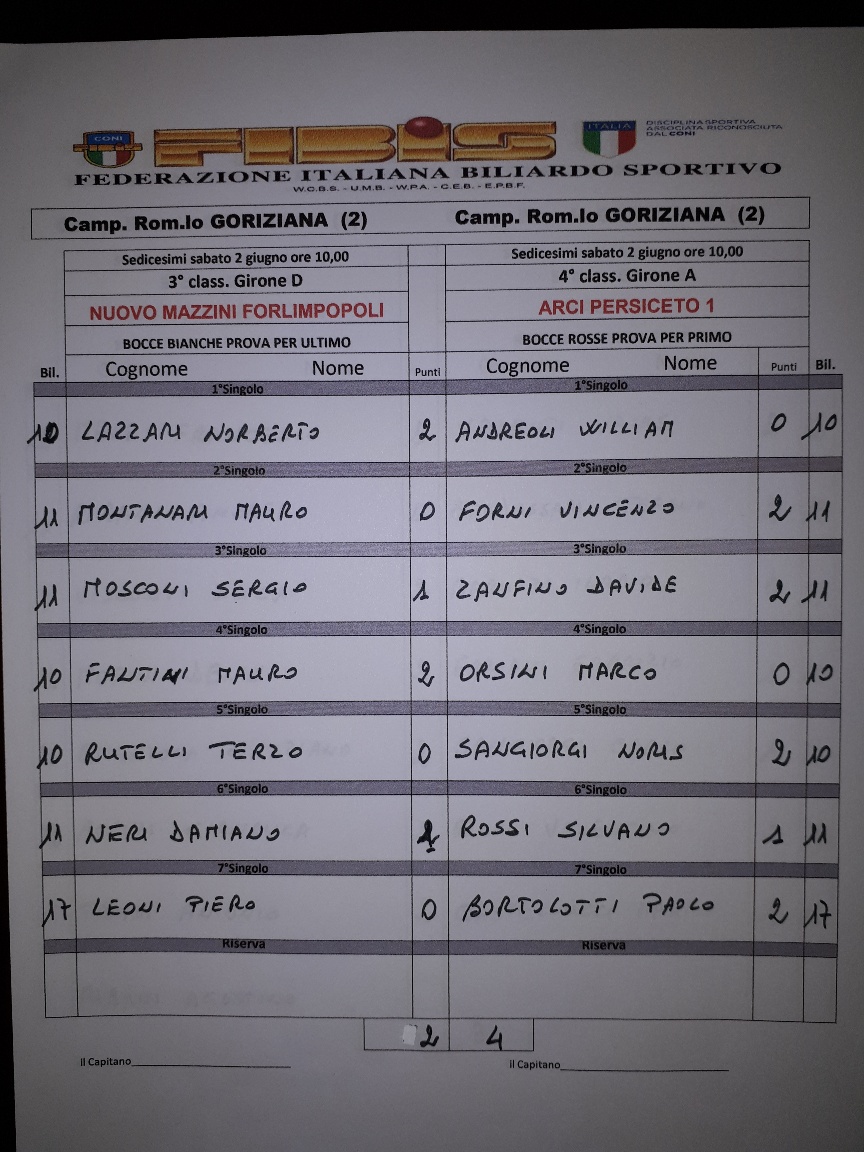 CONI
FIBiS
ITALIA
DISCIPLINA SPORTIVA
ASSOCIATA RICONOSCIUTA
DAL CONI
FEDERAZIONE ITALIANA BILIARDO SPORTIVO
W.C.B.S. - U.M.B. - W.P.A. - C.E.B. - E.P.B.F.
Camp. Rom.lo GORIZIANA (2) Camp. Rom.lo GORIZIANA (2)
Sedicesimi sabato 2 giugno ore 10,00 Sedicesimi sabato 2 giugno ore 10,00
3° class. Girone D 4° class. Girone A
NUOVO MAZZINI FORLIMPOPOLI ARCI PERSICETO 1
BOCCE BIANCHE PROVA PER ULTIMO BOCCE ROSSE PROVA PER PRIMO
Bil. Cognome Nome Punti Cognome Nome Punti Bil.
1°Singolo 1°Singolo
10 LAZZARI NORBERTO 2 ANDREOLI WILLIAM 0 10
2°Singolo 2°Singolo
11 MONTANARI MAURO 0 FORNI VINCENZO 2 11
3°Singolo 3°Singolo
11 MOSCONI SERGIO 1 ZANFINO DAVIDE 2 11
4°Singolo 4°Singolo
10 FANTINI MAURO 2 ORSINI MARCO 0 10
5°Singolo 5°Singolo
10 RUTELLI TERZO 0 SANGIORGI NORIS 2 10
6°Singolo 6°Singolo
11 NERI DAMIANO ROSSI SILVANO 1 11
7°Singolo 7°Singolo
17 LEONI PIERO 0 BORTOLOTTI PAOLO 2 17
Riserva Riserva
2 4
Il Capitano Il Capitano